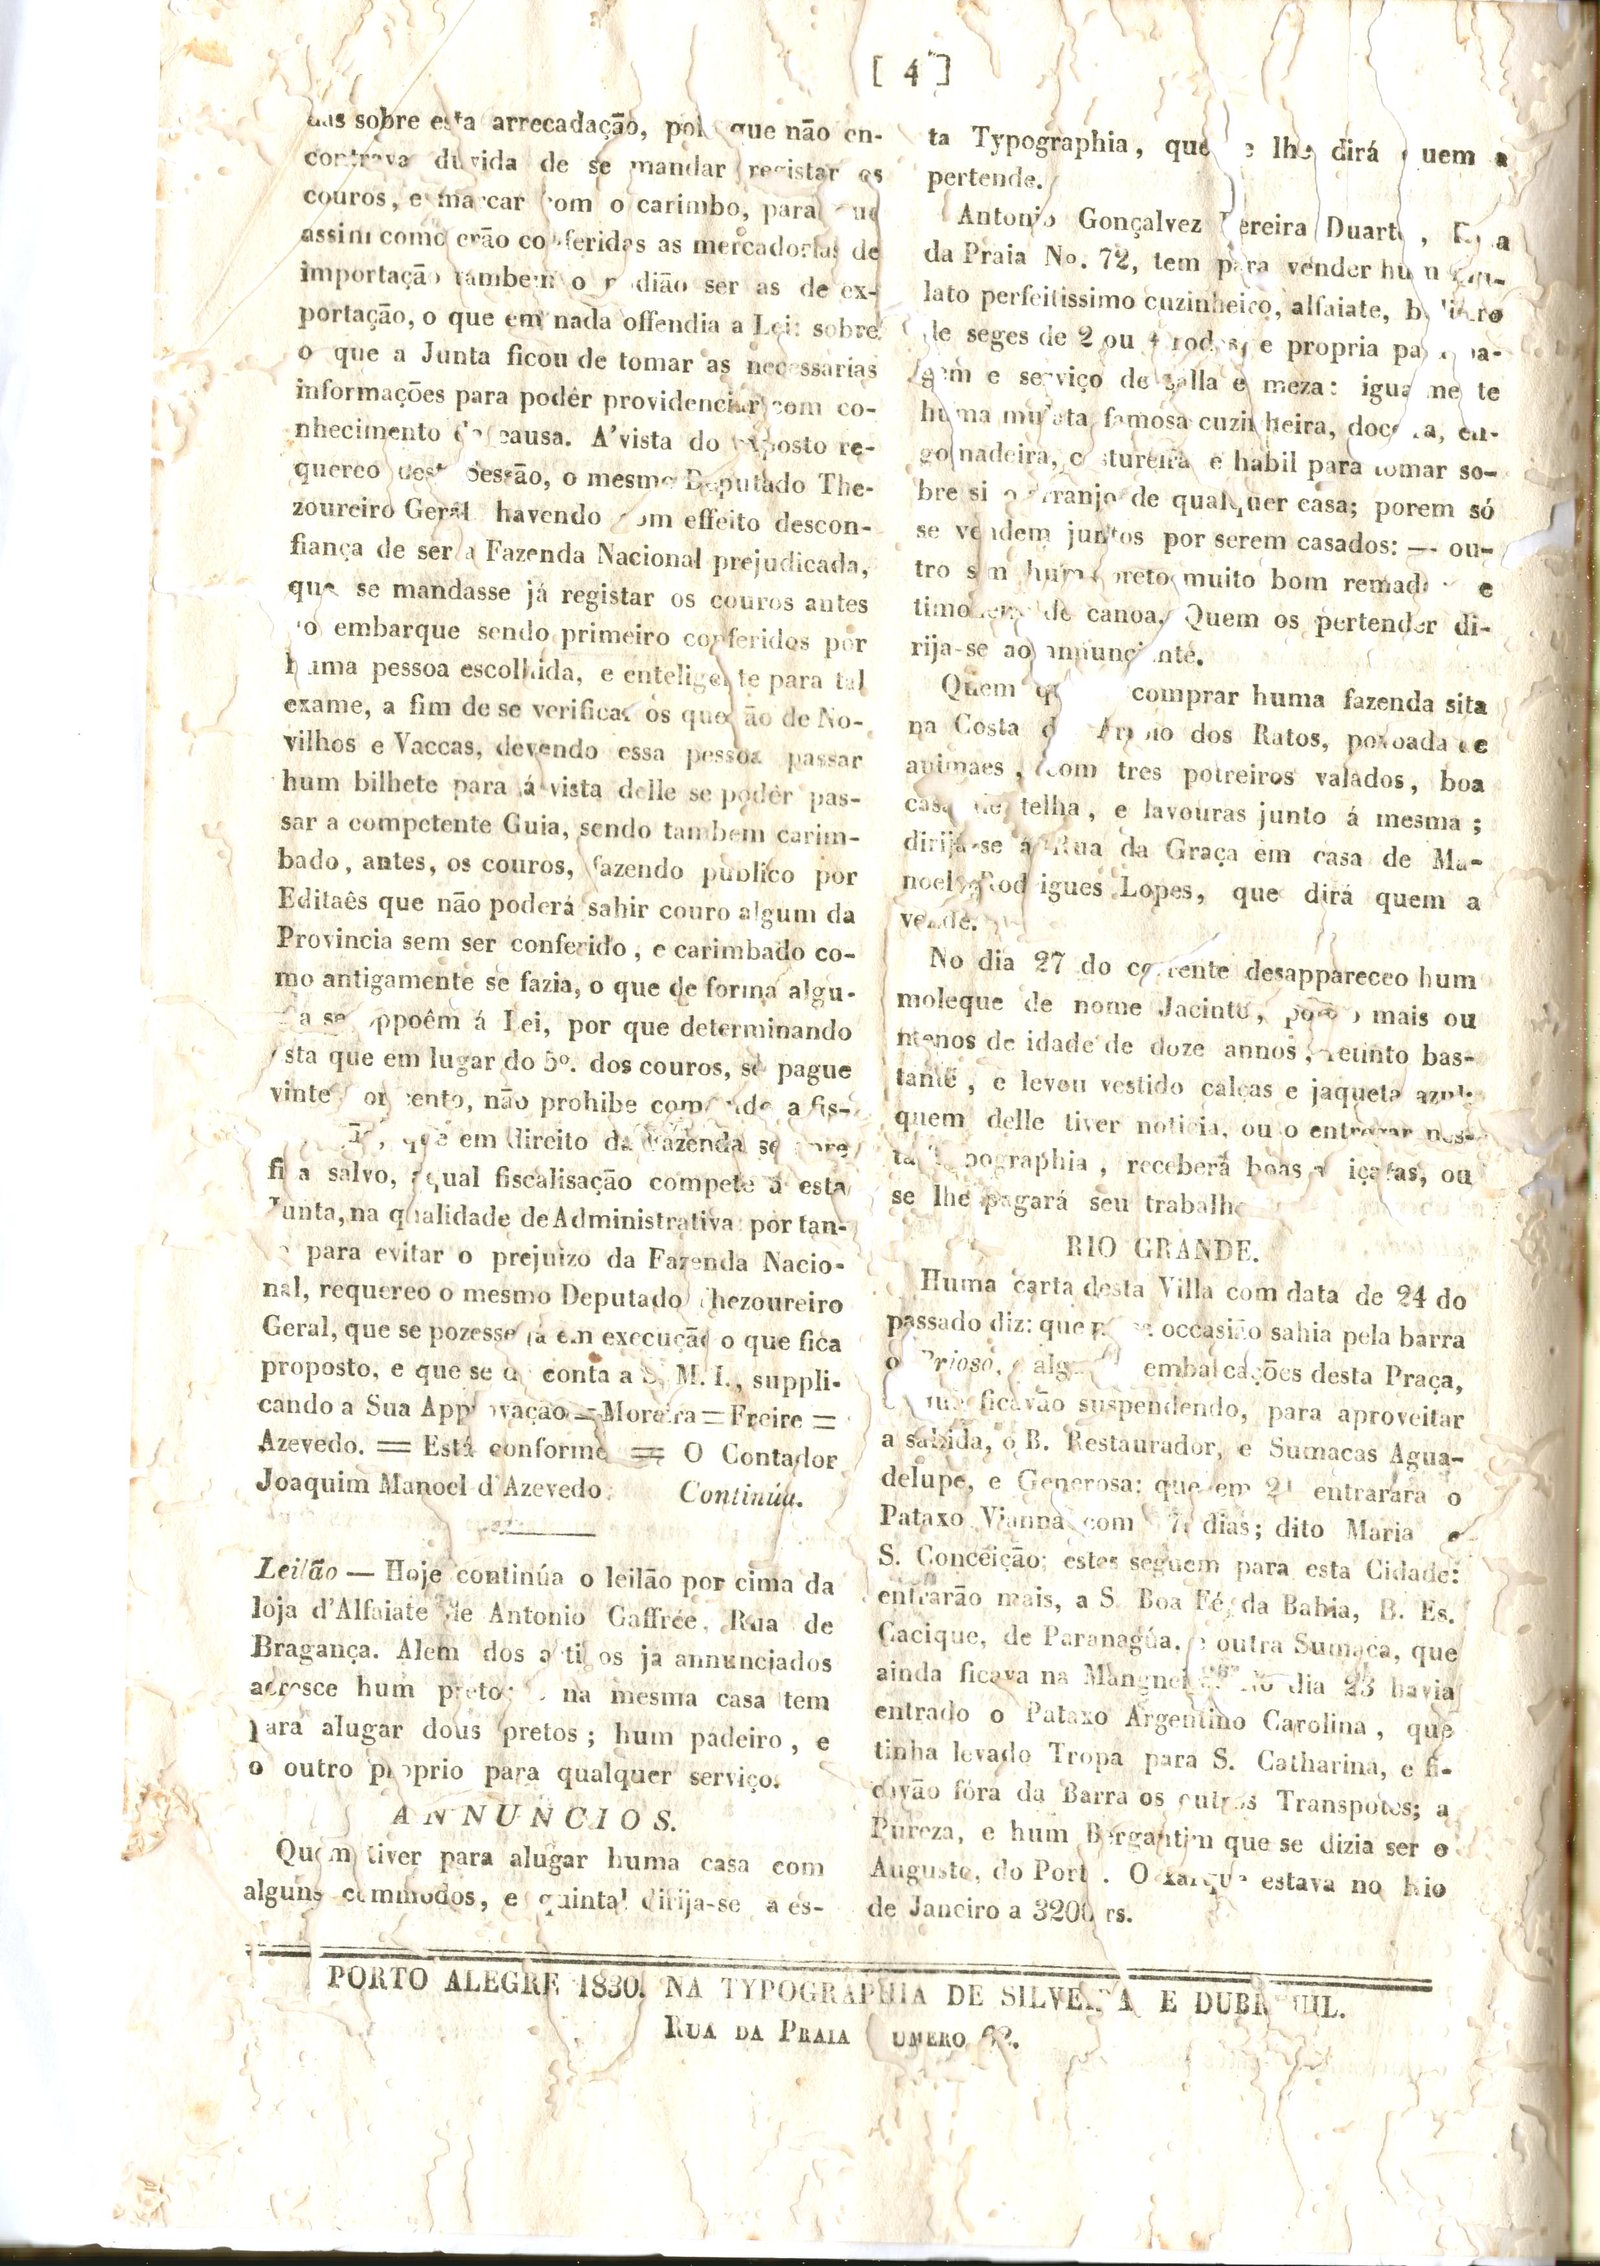 [ 4 ]
sobre esta arrecadação, que não en-
contrava duvida de se mandar registar os
couros, e marcar com o carimbo, para que
assim como erão conferidas as mercadorias de
importação tambem o podião ser as de ex-
portação, o que em nada offendia a Lei: sobre
o que a Junta ficou de tomar as necessarias
informações para podêr providenciar com co-
nhecimento da causa. A'vista do exposto re-
quereo nesta Sessão, o mesmo Deputado The-
zoureiro Geral havendo com effeito descon-
fiança de ser a Fazenda Nacional prejudicada,
que se mandasse já registar os couros antes
do embarque sendo primeiro conferidos por
huma pessoa escolhida, e enteligente para tal
exame, a fim de se verificar os que são de No-
vilhos e Vaccas, devendo essa pessoa passar
hum bilhete para á vista delle se podêr pas-
sar a competente Guia, sendo tambem carim-
bado, antes, os couros, fazendo publico por
Editaês que não poderá sahir couro algum da
Provincia sem ser conferido, e carimbado co-
mo antigamente se fazia, o que de forma algu-
ma se oppoêm á Lei, por que determinando
esta que em lugar do 5º. dos couros, se pague
vinte por cento, não prohibe a fis-
que em direito da Fazenda sempre
fica salvo, a qual fiscalisação compete a esta
Junta, na qualidade de Administrativa: por tan-
to para evitar o prejuizo da Fazenda Nacio-
nal, requereo o mesmo Deputado Thezoureiro
Geral, que se pozesse já em execução o que fica
proposto, e que se dê conta a S. M. I., suppli-
cando a Sua Approvação = Moreira = Freire =
Azevedo. = Está conforme = O Contador
Joaquim Manoel d'Azevedo. Continúa.
Leilão — Hoje continúa o leilão por cima da
loja d'Alfaiate de Antonio Gaffrée, Rua de
Bragança. Alem dos artigos ja annunciados
acresce hum preto: na mesma casa tem
para alugar dous pretos; hum padeiro, e
o outro proprio para qualquer serviço.
ANNUNCIOS.
Quem tiver para alugar huma casa com
alguns commodos, e quintal dirija-se a es-
ta Typographia, que se lhe dirá quem a
pertende.
Antonio Gonçalvez Pereira Duarte, Rua
da Praia No. 72, tem para vender hum mu-
lato perfeitissimo cuzinheiro, alfaiate, bolieiro
de seges de 2 ou 4 rodas, e propria para pa-
gem e serviço de salla e meza: igualmente
huma mulata famosa cuzinheira, doceira, en-
gomadeira, costureira e habil para tomar so-
bre si o arranjo de qualquer casa; porem só
se vendem juntos por serem casados: — ou-
tro sim hum preto muito bom remador e
timoneiro de canoa. Quem os pertender di-
rija-se ao annunciante.
Quem comprar huma fazenda sita
na Costa do Arroio dos Ratos, povoada de
animaes, com tres potreiros valados, boa
casa de telha, e lavouras junto á mesma;
dirija-se á Rua da Graça em casa de Ma-
noel Rodrigues Lopes, que dirá quem a
vende.
No dia 27 do corrente desappareceo hum
moleque de nome Jacinto, pouco mais ou
menos de idade de doze annos, retinto bas-
tante, e levou vestido calças e jaqueta azul:
quem delle tiver noticia, ou o entregar nes-
ta Typographia, receberá boas alviçaras, ou
se lhe pagará seu trabalho
RIO GRANDE.
Huma carta desta Villa com data de 24 do
passado diz: que occasião sahia pela barra
o Brioso, e algumas embarcações desta Praça,
que ficavão suspendendo, para aproveitar
a sahida, o B. Restaurador, e Sumacas Agua-
delupe, e Generosa: que em 21 entrarára o
Pataxo Vianna com 7 dias; dito Maria e
S. Conceição; estes seguem para esta Cidade:
entrarão mais, a S. Boa Fé, da Bahia, B. Es.
Cacique, de Paranagúa, e outra Sumaca, que
ainda ficava na Mangueira. No dia 23 havia
entrado o Pataxo Argentino Carolina, que
tinha levado Tropa para S. Catharina, e fi-
cavão fóra da Barra os outros Transpotes; a
Pureza, e hum Bergantim que se dizia ser o
Augusto, do Porto. O xarque estava no Rio
de Janeiro a 3200 rs.
PORTO ALEGRE 1830. NA TYPOGRAPHIA DE SILVEIRA E DUBREUIL.
RUA DA PRAIA NUMERO 62.